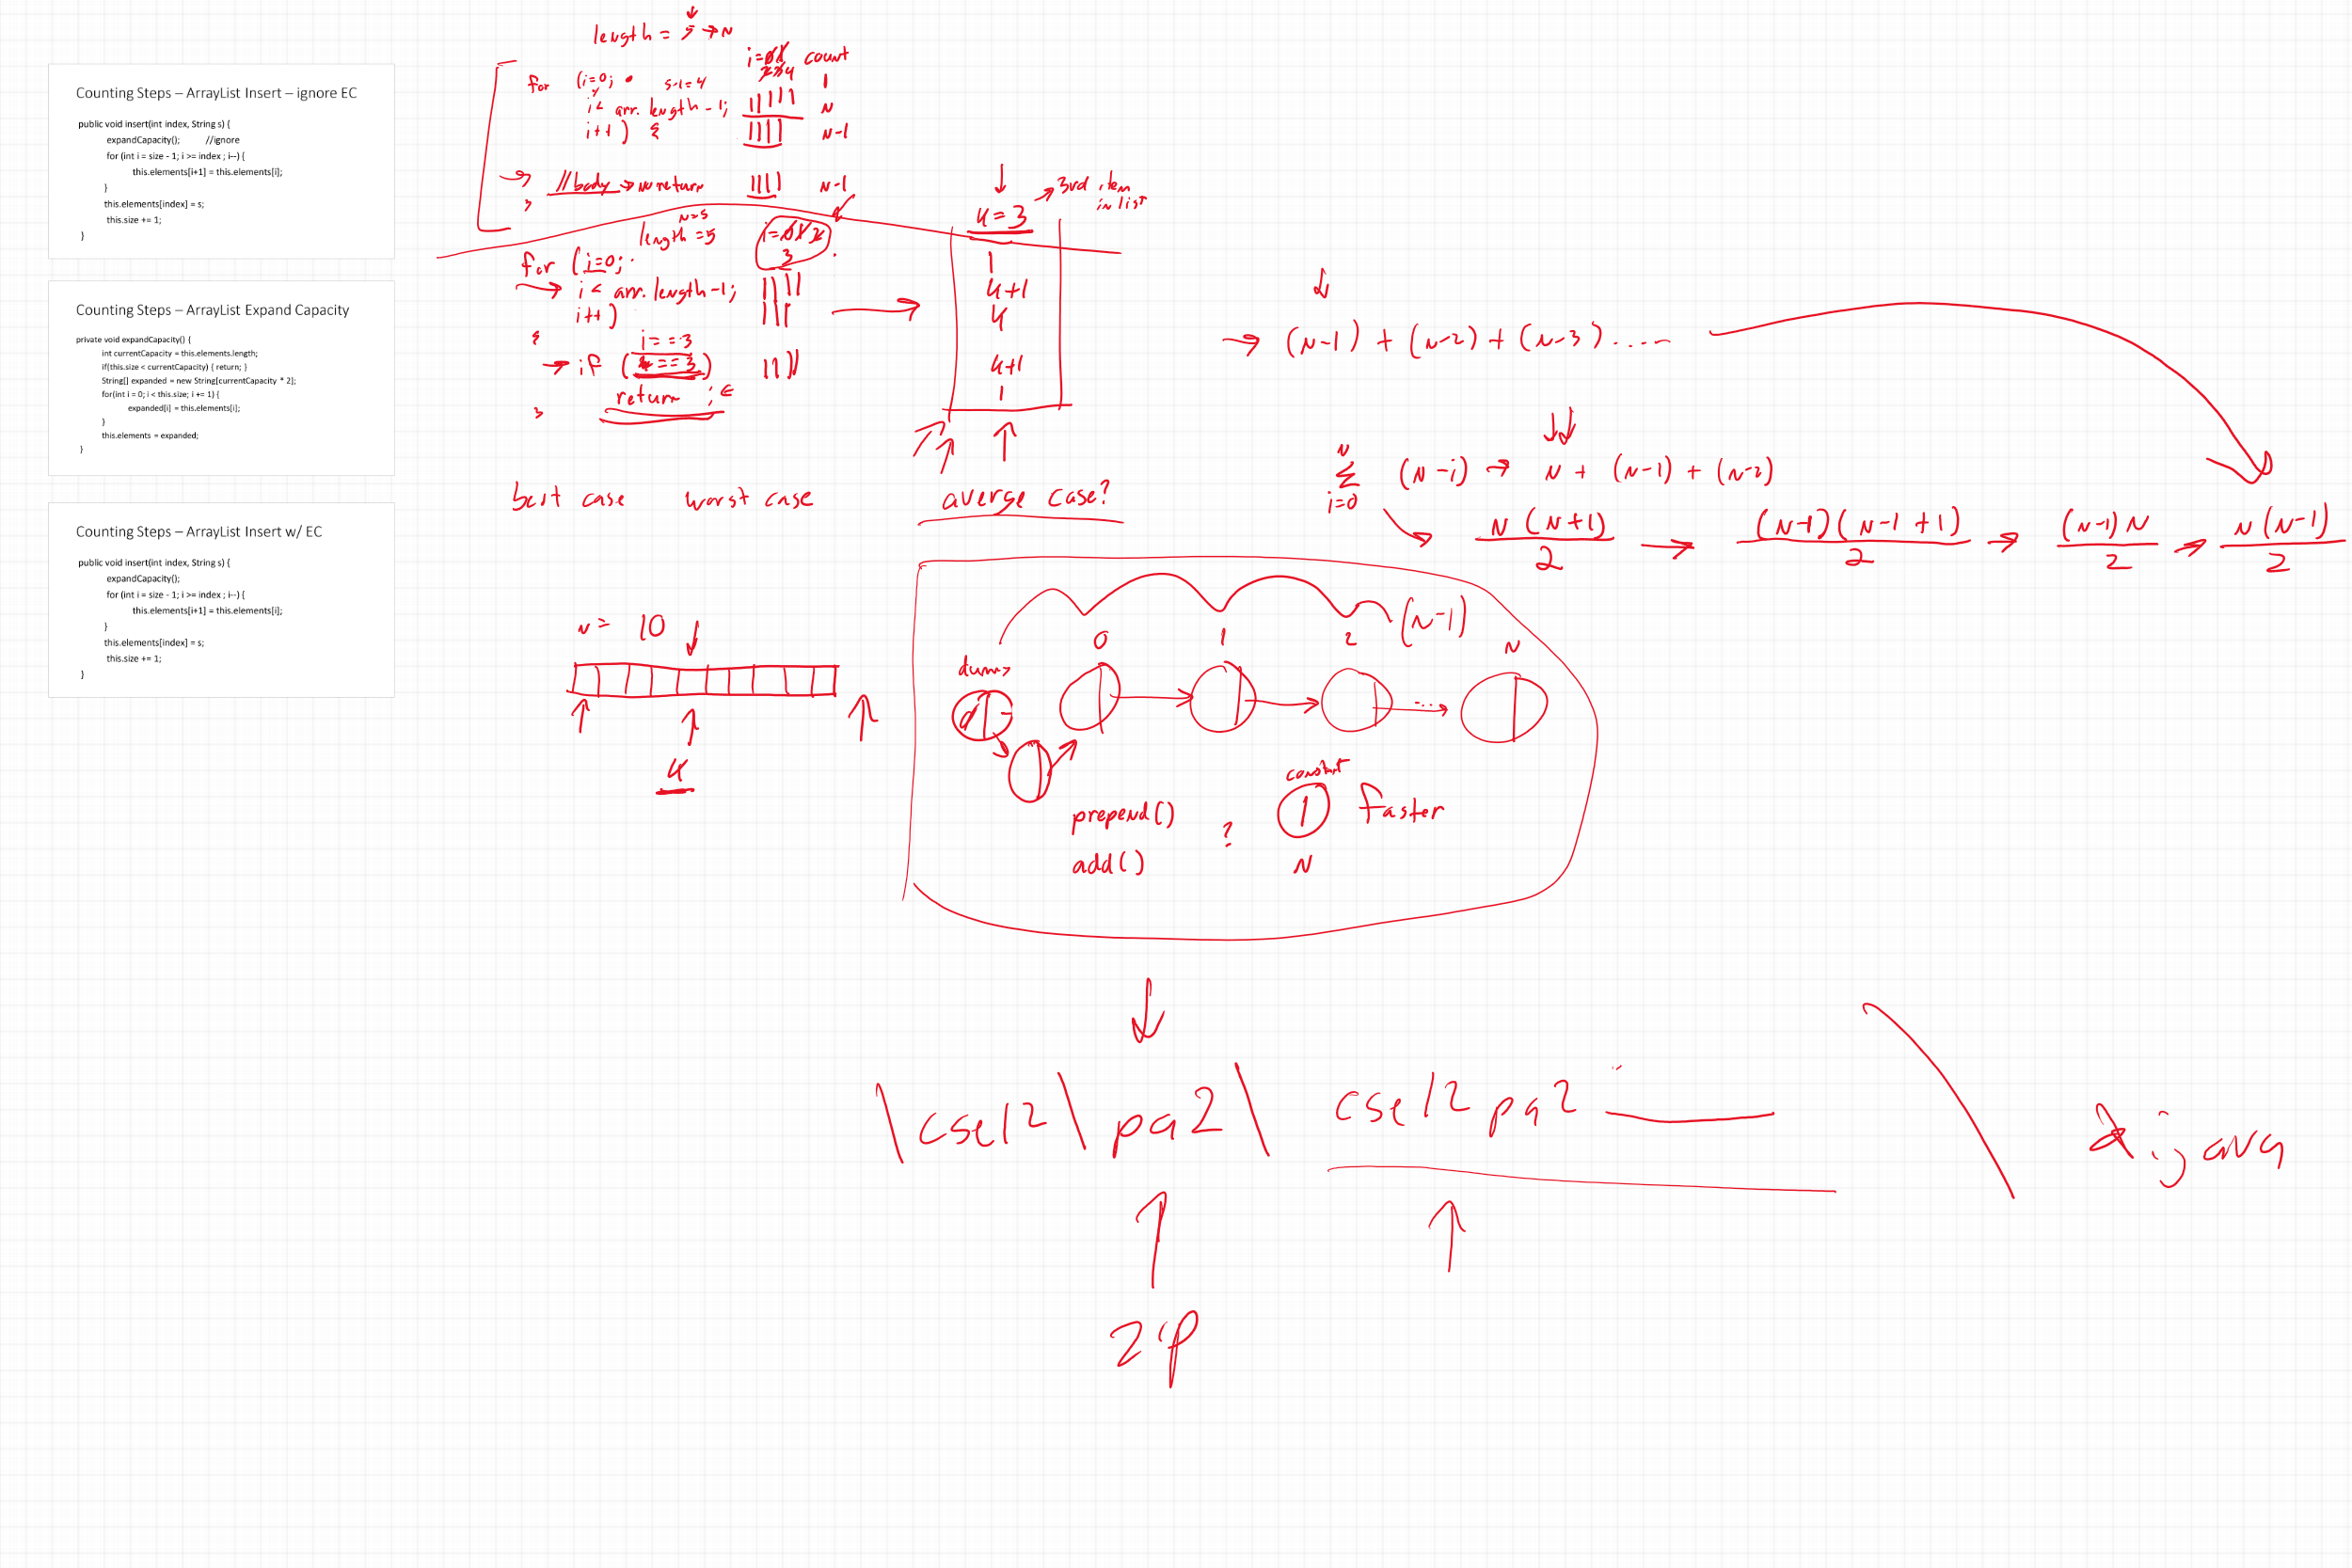 Counting Steps – ArrayList Insert – ignore EC
public void insert(int index, String s) {
expandCapacity(); //ignore
for (int i = size - 1; i >= index ; i--) {
this.elements[i+1] = this.elements[i];
}
this.elements[index] = s;
this.size += 1;
}
Counting Steps – ArrayList Expand Capacity
private void expandCapacity() {
int currentCapacity = this.elements.length;
if(this.size < currentCapacity) { return; }
String[] expanded = new String[currentCapacity * 2];
for(int i = 0; i < this.size; i += 1) {
expanded[i] = this.elements[i];
}
this.elements = expanded;
}
Counting Steps – ArrayList Insert w/ EC
public void insert(int index, String s) {
expandCapacity();
for (int i = size - 1; i >= index ; i--) {
this.elements[i+1] = this.elements[i];
}
this.elements[index] = s;
this.size += 1;
}
length = 5 → N
count
for (i=0; 5-1=4 1
i < arr.length-1; N
i++) { N-1
//body → no return N-1
}
N=5
length = 5
for (i=0;
i < arr.length-1;
i++)
{
i==3
if ( ==3)
return ;
}
k=3 → 3rd item
in list
1
k+1
k
k+1
1
→ (N-1) + (N-2) + (N-3) ....
N
Σ (N-i) → N + (N-1) + (N-2)
i=0
N(N+1)/2 → (N-1)(N-1+1)/2 → (N-1)N/2 → N(N-1)/2
best case worst case averge case?
N = 10
k
(N-1)
0 1 2 N
dummy
d
...
constant
prepend() ? 1 faster
add() N
\cse12\pa2\ cse12pa2
zip
*.java